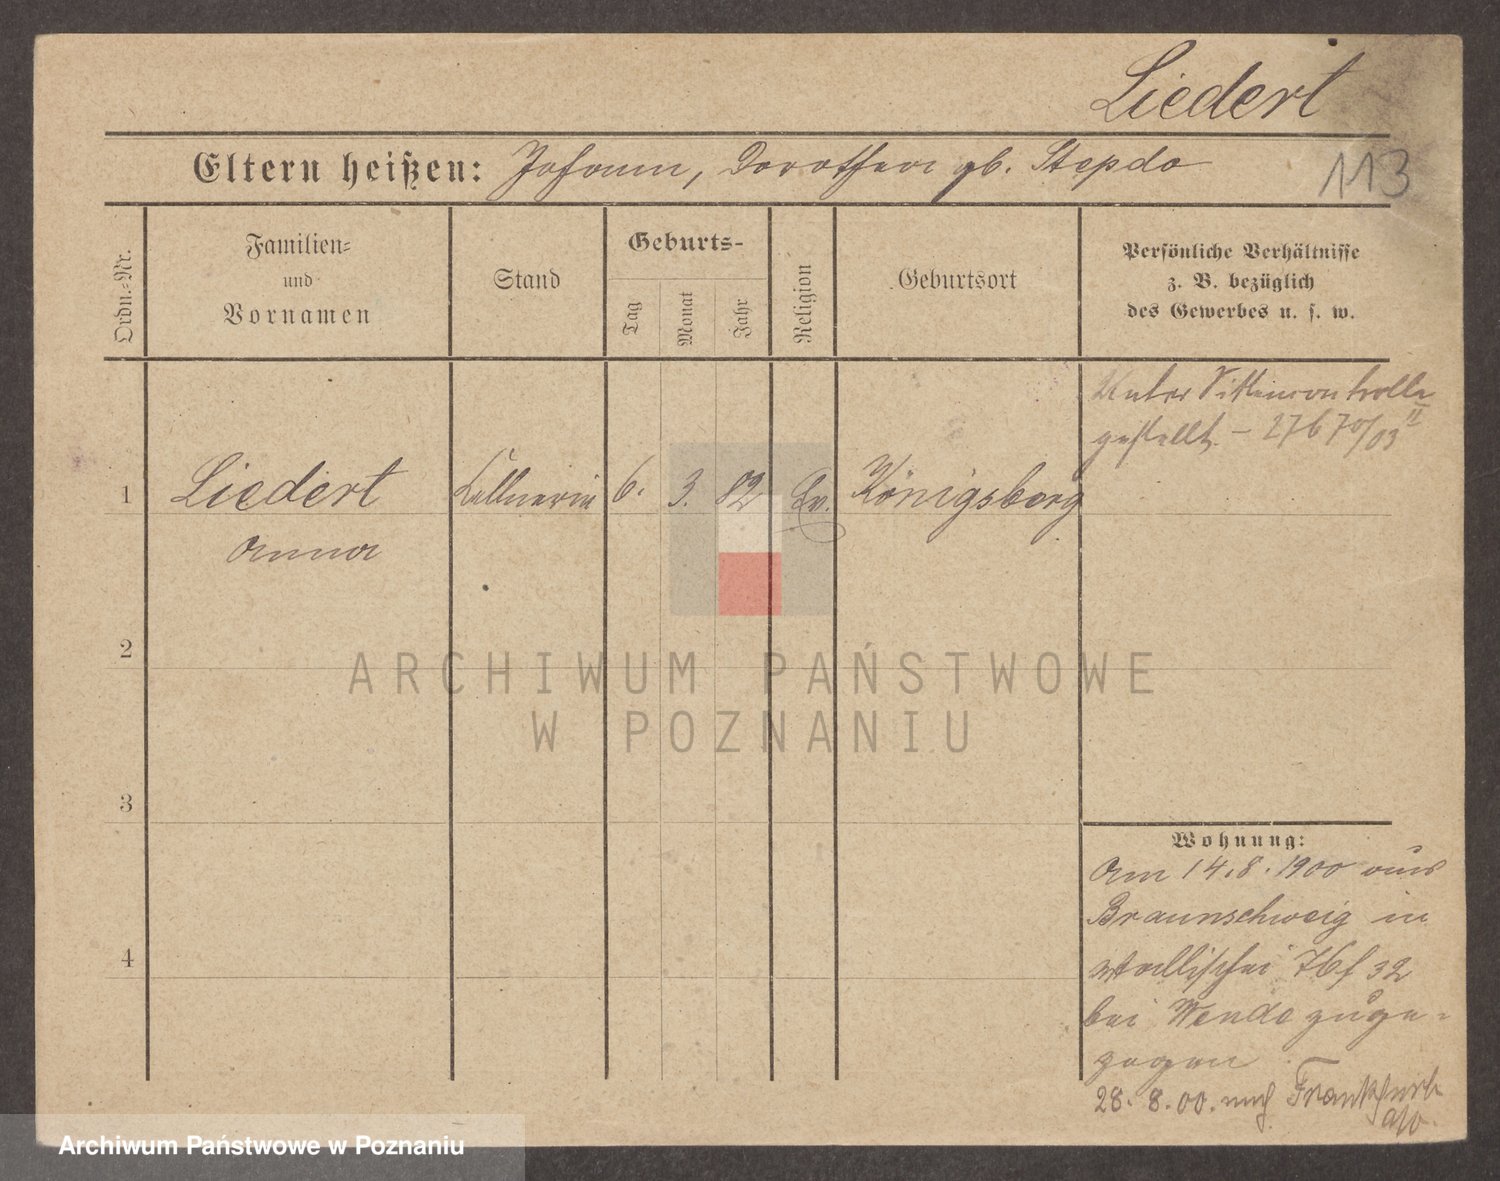 Liedert
Eltern heißen: Johann, Dorothea gb. Stepdo
113
Ordn.-Nr.
Familien-
und
Vornamen
Stand
Geburts-
Tag
Monat
Jahr
Religion
Geburtsort
Persönliche Verhältnisse
z. B. bezüglich
des Gewerbes u. s. w.
Unter Sittencontrolle
gestellt. – 27670/03 II
1 Liedert Kellnerin 6. 3. 82 Ev. Königsberg
Anna
2
3
4
Wohnung:
Am 14.8.1900 aus
Braunschweig in
Wallischei 32
bei Wende zuge-
zogen
28. 8. 00. nach Frankfurt
a/o.
ARCHIWUM PAŃSTWOWE
W POZNANIU
Archiwum Państwowe w Poznaniu